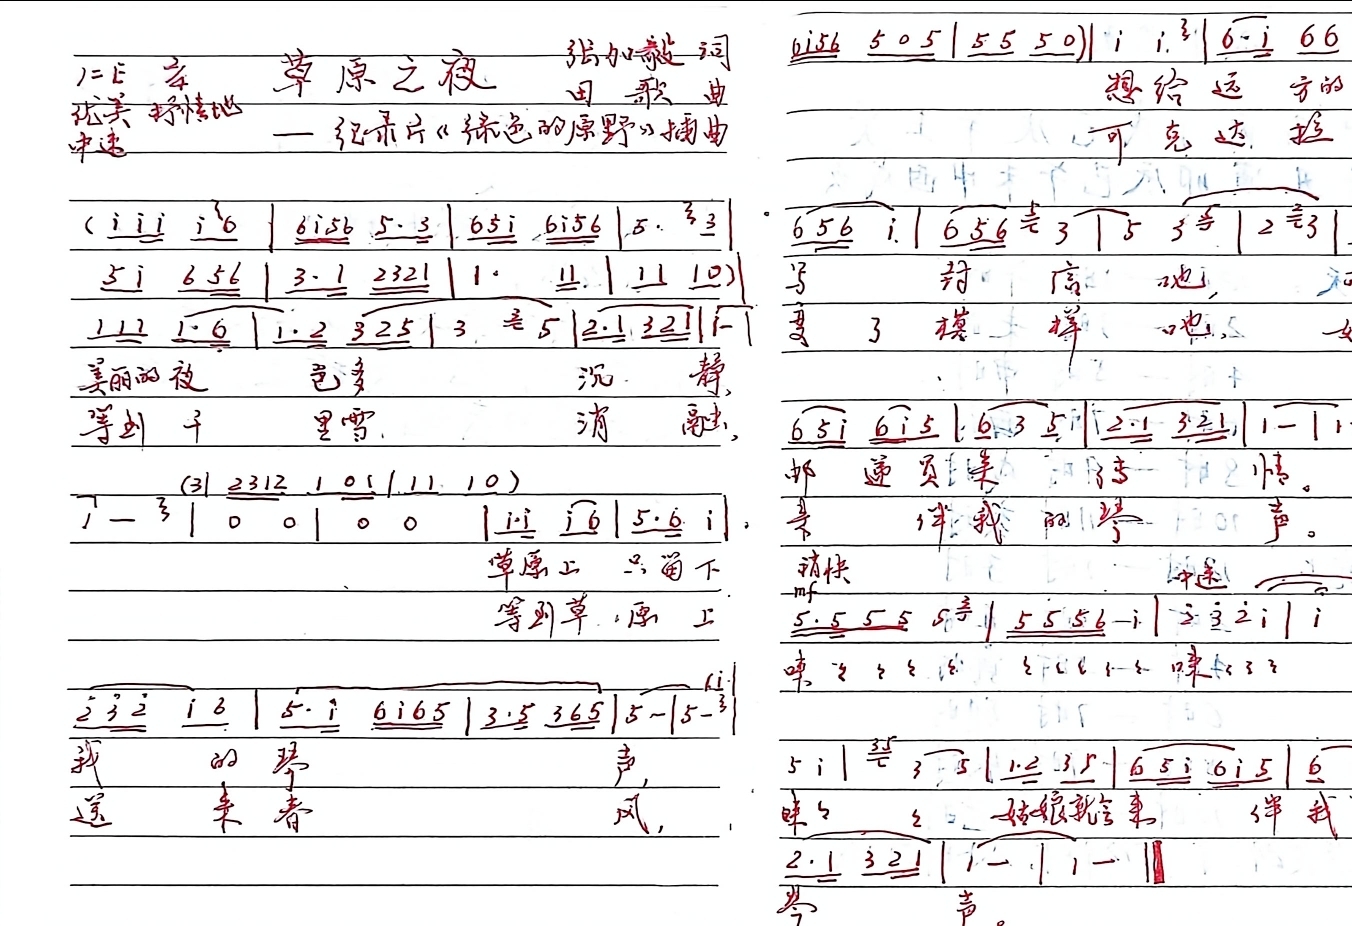 1=E 草原之夜 张加毅 词
优美 抒情地 田 歌 曲
中速 — 纪录片《绿色的原野》插曲
( i i i i 6 | 6i56 5·3 | 65i 6i56 | 5· 3 |
5i 656 | 3·1 2321 | 1· 11 | 11 10)|
111 1·6 | 1·2 325 | 3 5 | 2·1 321 | 1- |
美丽的夜 色多 沉 静,
等到千 里雪 消 融,
(3| 2312 101 | 11 10)
1 — | 0 0 | 0 0 | i·i i6 | 5·6 i |
草原上 只留下
等到草原 上
232 i6 | 5·i 6i65 | 3·5 365 | 5- | 5- |
(i·|
我 的 琴 声,
送 来 春 风,
6i56 505 | 55 50)| i i· | 6·i 66
想给远 方的
可克达 拉
656 i | 656 3 | 5 3 | 2 3 |
写 封 信 吧,
变 了 模 样 吧,
65i 6i5 | 6 3 5 | 2·1 321 | 1- | 1
邮 递员来 传 情。
来 伴我 的琴 声。
稍快 中速
mf
5·5 5 5 5 | 5 5 5 6 i | 2 3 2 i | i
来 来
5 i | 35 3 5 | 1·2 35 | 65i 6i5 | 6
来 姑娘就会来 伴我
2·1 321 | 1- | 1- ‖
琴 声。